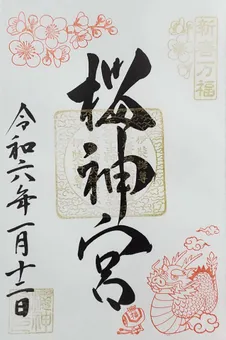 新春万福
桜神宮
令和六年一月十二日